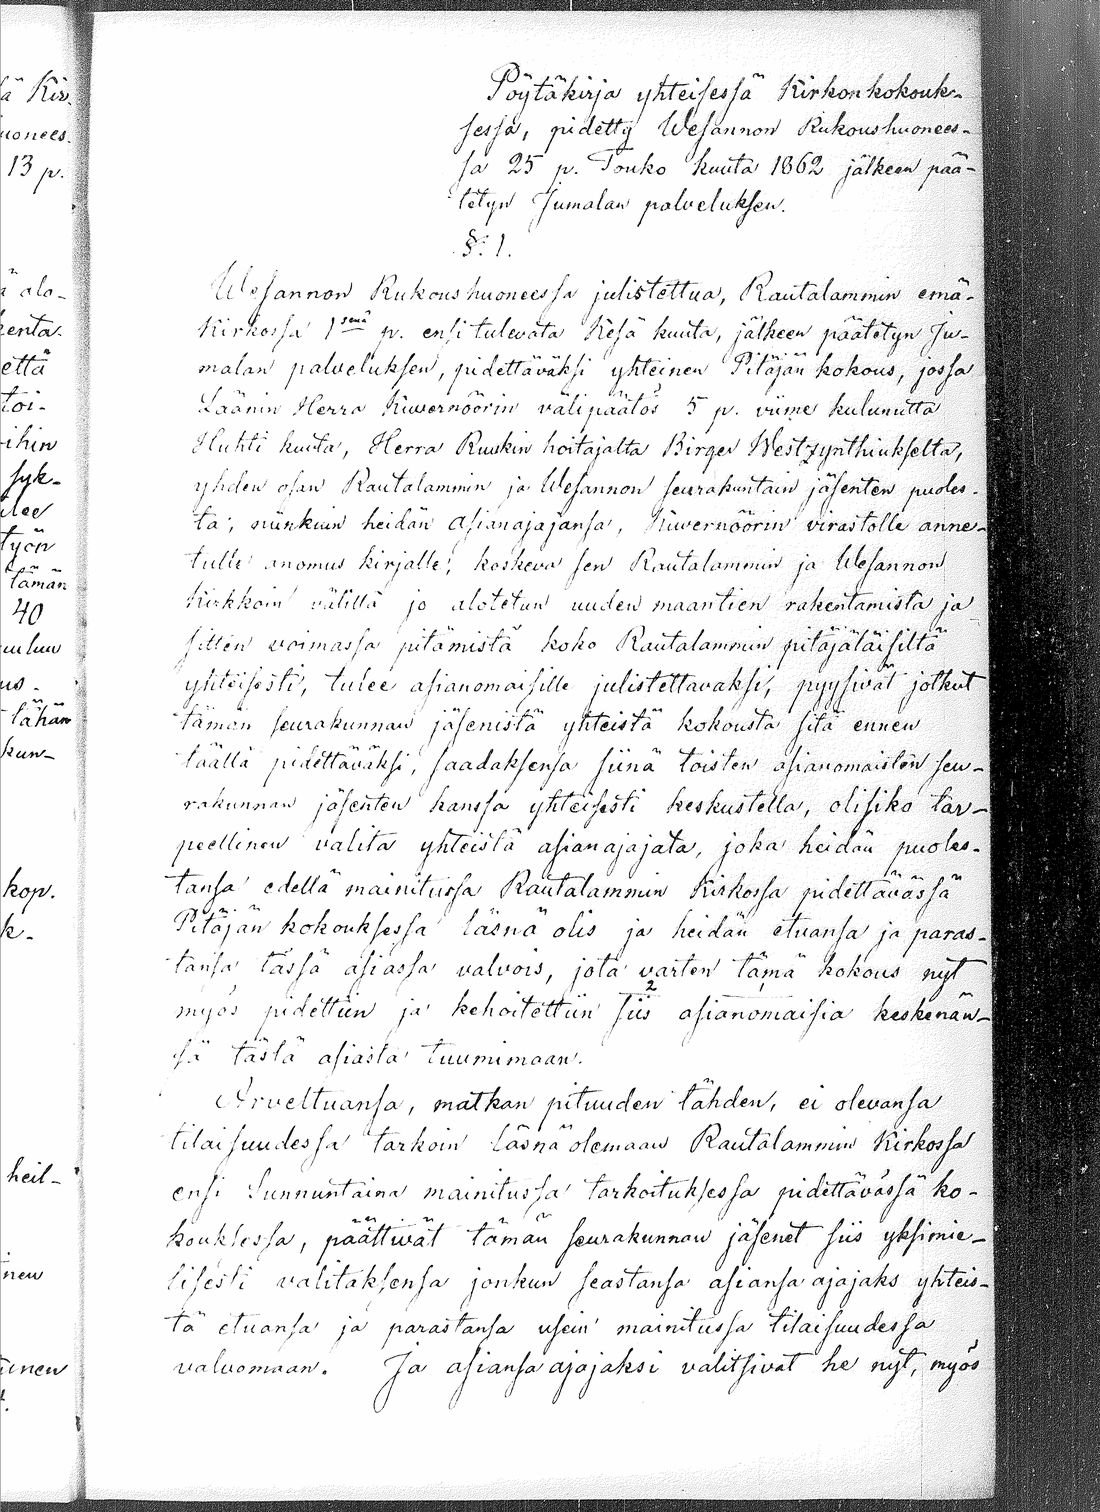 Pöytäkirja yhteisessä Kirkonkokouk-
sessa, pidetty Wesannon Rukoushuonees-
sa 25 p. Touko kuuta 1862 jälkeen pää-
tetyn Jumalan palveluksen.
§: 1.
Wesannon Rukoushuoneessa julistettua, Rautalammin emä-
Kirkossa 1senä p. ensi tulevata Kesä kuuta, jälkeen päätetyn Ju-
malan palveluksen, pidettäväksi yhteinen Pitäjän kokous, jossa
Läänin Herra Kuvernöörin välipäätös 5 p. viime kulunutta
Huhti kuuta, Herra Ruukin hoitajalta Birger Westzynthiukselta,
yhden osan Rautalammin ja Wesannon seurakuntain jäsenten puoles-
ta, niinkuin heidän asianajajansa, Kuvernöörin virastolle anne-
tulle anomus kirjalle, koskeva sen Rautalammin ja Wesannon
Kirkkoin välillä jo alotetun uuden maantien rakentamista ja
sitten voimassa pitämistä koko Rautalammin pitäjäläisiltä
yhteisesti, tulee asianomaisille julistettavaksi, pyysivät jotkut
tämän seurakunnan jäsenistä yhteistä kokousta sitä ennen
täällä pidettäväksi, saadaksensa siinä toisten asianomaisten seu-
rakunnan jäsenten kanssa yhteisesti keskustella, olisiko tar-
peellinen valita yhteistä asianajajata, joka heidän puoles-
tansa edellä mainitussa Rautalammin Kirkossa pidettävässä
Pitäjän kokouksessa läsnä olis ja heidän etuansa ja paras-
tansa tässä asiassa valvois, jota varten tämä kokous nyt
myös pidettiin ja kehoitettiin siis asianomaisia keskenän-
sä tästä asiasta tuumimaan.
Arveltuansa, matkan pituuden tähden, ei olevansa
tilaisuudessa tarkoin läsnä olemaan Rautalammin Kirkossa
ensi Sunnuntaina mainitussa tarkoituksessa pidettävässä ko-
kouksessa, päättivät tämän seurakunnan jäsenet siis yksimie-
lisesti valitaksensa jonkun seastansa asiansa ajajaks yhteis-
tä etuansa ja parastansa usein mainitussa tilaisuudessa
valvomaan. Ja asiansa ajajaksi valitsivat he nyt, myös